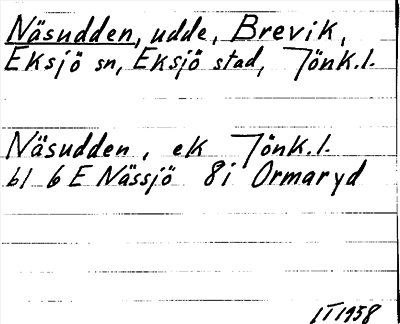 Näsudden, udde, Brevik,
Eksjö sn, Eksjö stad, Jönk.l.
Näsudden, ek Jönk.l.
bl 6 E Nässjö 8i Ormaryd